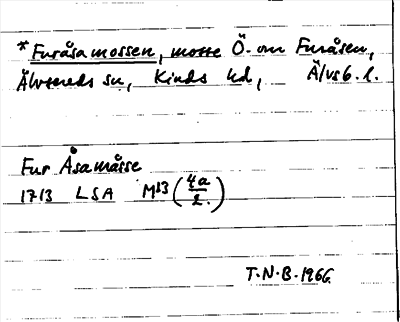 *Furåsamossen, mosse Ö. om Furåsen,
Älvsereds sn, Kinds hd, Älvsb. l.
Fur Åsamåsse
1713 LSA M13 (4a/2.)
T.N.B. 1966